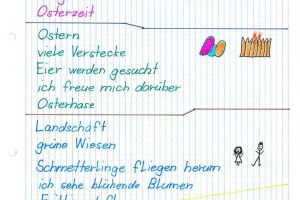 Osterzeit
Ostern
viele Verstecke
Eier werden gesucht
ich freue mich darüber
Osterhase
Landschaft
grüne Wiesen
Schmetterlinge fliegen herum
ich sehe blühende Blumen